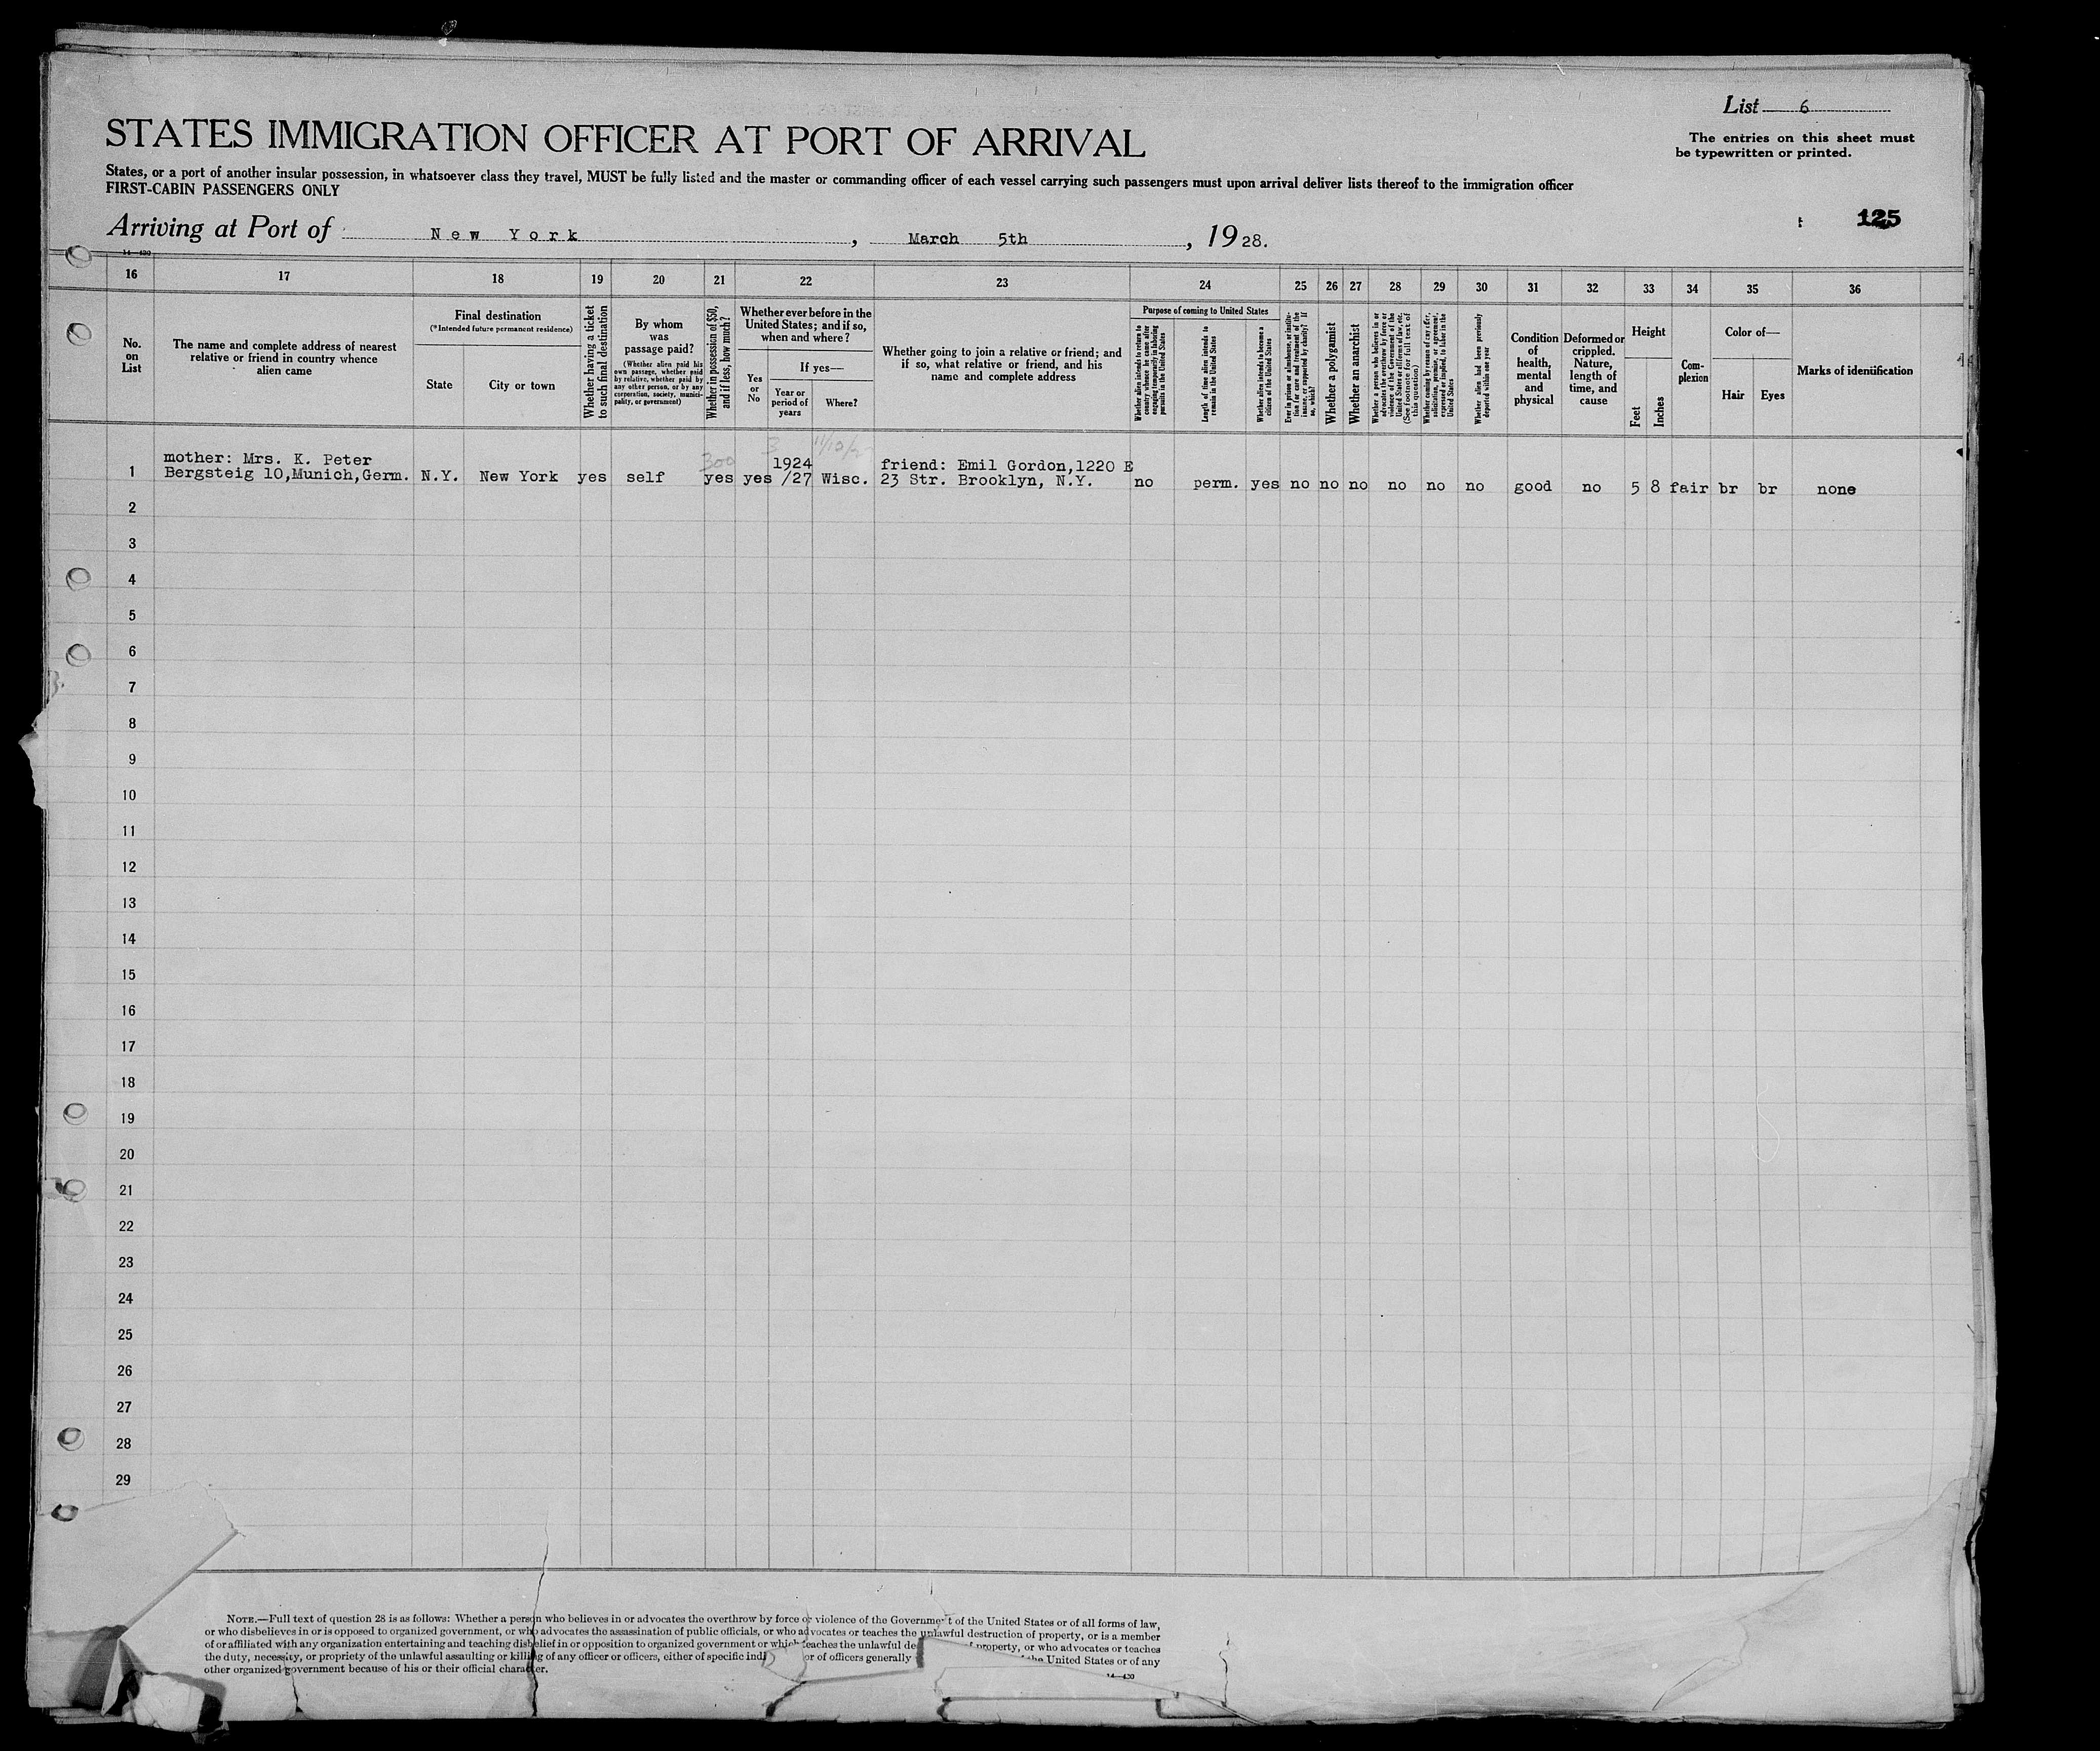 List 6
The entries on this sheet must
be typewritten or printed.
STATES IMMIGRATION OFFICER AT PORT OF ARRIVAL
States, or a port of another insular possession, in whatsoever class they travel, MUST be fully listed and the master or commanding officer of each vessel carrying such passengers must upon arrival deliver lists thereof to the immigration officer
FIRST-CABIN PASSENGERS ONLY
125
Arriving at Port of New York, March 5th, 1928.
14—430
16 17 18 19 20 21 22 23 24 25 26 27 28 29 30 31 32 33 34 35 36
No.
on
List
The name and complete address of nearest
relative or friend in country whence
alien came
Final destination
(*Intended future permanent residence)
State
City or town
Whether having a ticket
to such final destination
By whom
was
passage paid?
(Whether alien paid his
own passage, whether paid
by relative, whether paid by
any other person, or by any
corporation, society, munici-
pality, or government)
Whether in possession of $50,
and if less, how much?
Whether ever before in the
United States; and if so,
when and where?
Yes
or
No
If yes—
Year or
period of
years
Where?
Whether going to join a relative or friend; and
if so, what relative or friend, and his
name and complete address
Purpose of coming to United States
Whether alien intends to return to
country whence he came after
engaging temporarily in laboring
pursuits in the United States
Length of time alien intends to
remain in the United States
Whether alien intends to become a
citizen of the United States
Ever in prison or almshouse, or institu-
tion for care and treatment of the
insane, or supported by charity? If
so, which?
Whether a polygamist
Whether an anarchist
Whether a person who believes in or
advocates the overthrow by force or
violence of the Government of the
United States or all forms of law, etc.
(See footnote for full text of
this question)
Whether coming by reason of any offer,
solicitation, promise, or agreement,
expressed or implied, to labor in the
United States
Whether alien had been previously
deported within one year
Condition
of
health,
mental
and
physical
Deformed or
crippled.
Nature,
length of
time, and
cause
Height
Feet
Inches
Com-
plexion
Color of—
Hair
Eyes
Marks of identification
300 3 11/12/27
mother: Mrs. K. Peter 1924 friend: Emil Gordon,1220 E
1 Bergsteig 10,Munich,Germ. N.Y. New York yes self yes yes /27 Wisc. 23 Str. Brooklyn, N.Y. no perm. yes no no no no no no good no 5 8 fair br br none
2
3
4
5
6
7
8
9
10
11
12
13
14
15
16
17
18
19
20
21
22
23
24
25
26
27
28
29
NOTE.—Full text of question 28 is as follows: Whether a person who believes in or advocates the overthrow by force or violence of the Government of the United States or of all forms of law,
or who disbelieves in or is opposed to organized government, or who advocates the assassination of public officials, or who advocates or teaches the unlawful destruction of property, or is a member
of or affiliated with any organization entertaining and teaching disbelief in or opposition to organized government or which teaches the unlawful of property, or who advocates or teaches
the duty, necessity, or propriety of the unlawful assaulting or killing of any officer or officers, either of specific or of officers generally the United States or of any
other organized government because of his or their official character.
14—430